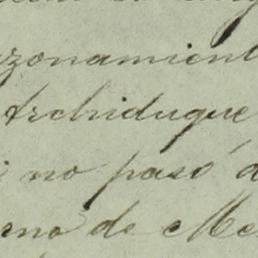 azonamient
Archiduque
no pasó a
rno de Me